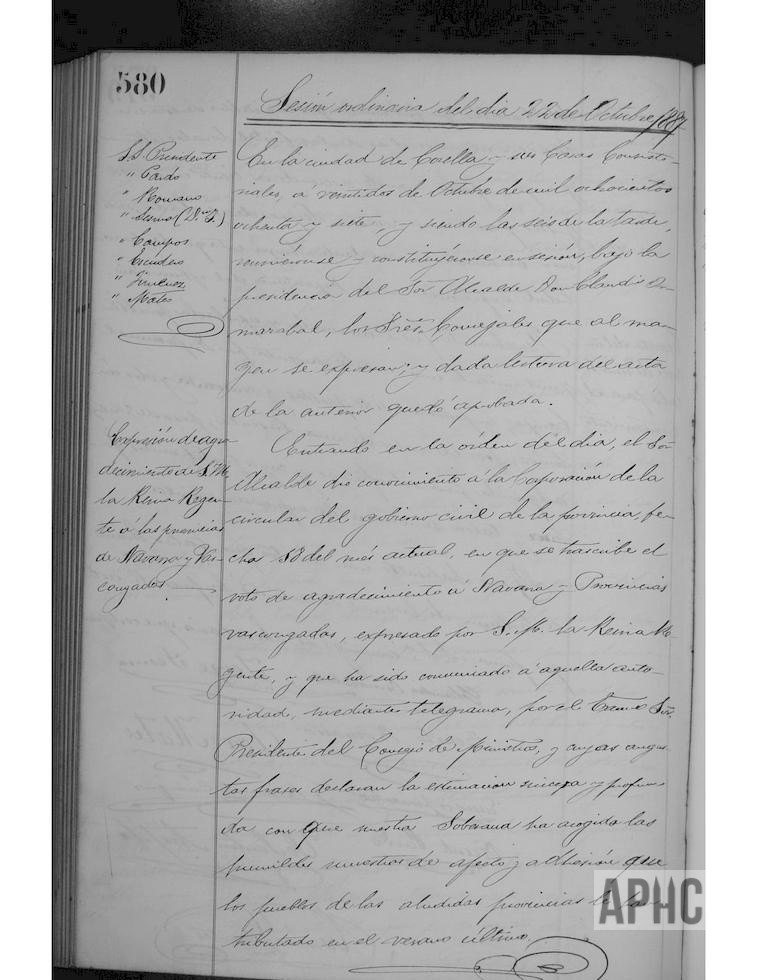 580
Sesión ordinaria del dia 22 de Octubre 1887
S.S. Presidente
" Pardo
" Romano
" Sesma (Dn Z)
" Campos
" Escudero
" Jimenez
" Mateo
En la ciudad de Corella y sus Casas Consisto-
riales, á veintidos de Octubre de mil ochocientos
ochenta y siete, y siendo las seis de la tarde,
reuniéronse y constituyéronse en sesión, bajo la
presidencia del Sor Alcalde Don Claudio
marabal, los Sres. Concejales que al mar-
gen se expresan; y dada lectura del acta
de la anterior quedó aprobada.
Expresión de agra-
decimiento de S.M.
la Reina Regen-
te á las provincias
de Navarra y Vas-
congadas.
Entrando en la orden del dia, el Sor
Alcalde dio conocimiento á la Corporación de la
circular del gobierno civil de la provincia, fe-
cha 18 del més actual, en que se trascribe el
voto de agradecimiento á Navarra y Provincias
vascongadas, expresado por S. M. la Reina Re-
gente, y que ha sido comunicado á aquella auto-
ridad, mediante telegrama, por el Excmo Sor.
Presidente del Consejo de Ministros, y cuyas augus-
tas frases declaran la estimacion sincera y profun-
da con que nuestra Soberana ha acogido las
humildes muestras de afecto y adhesión que
los pueblos de las aludidas provincias le han
tributado en el verano último.
APHC